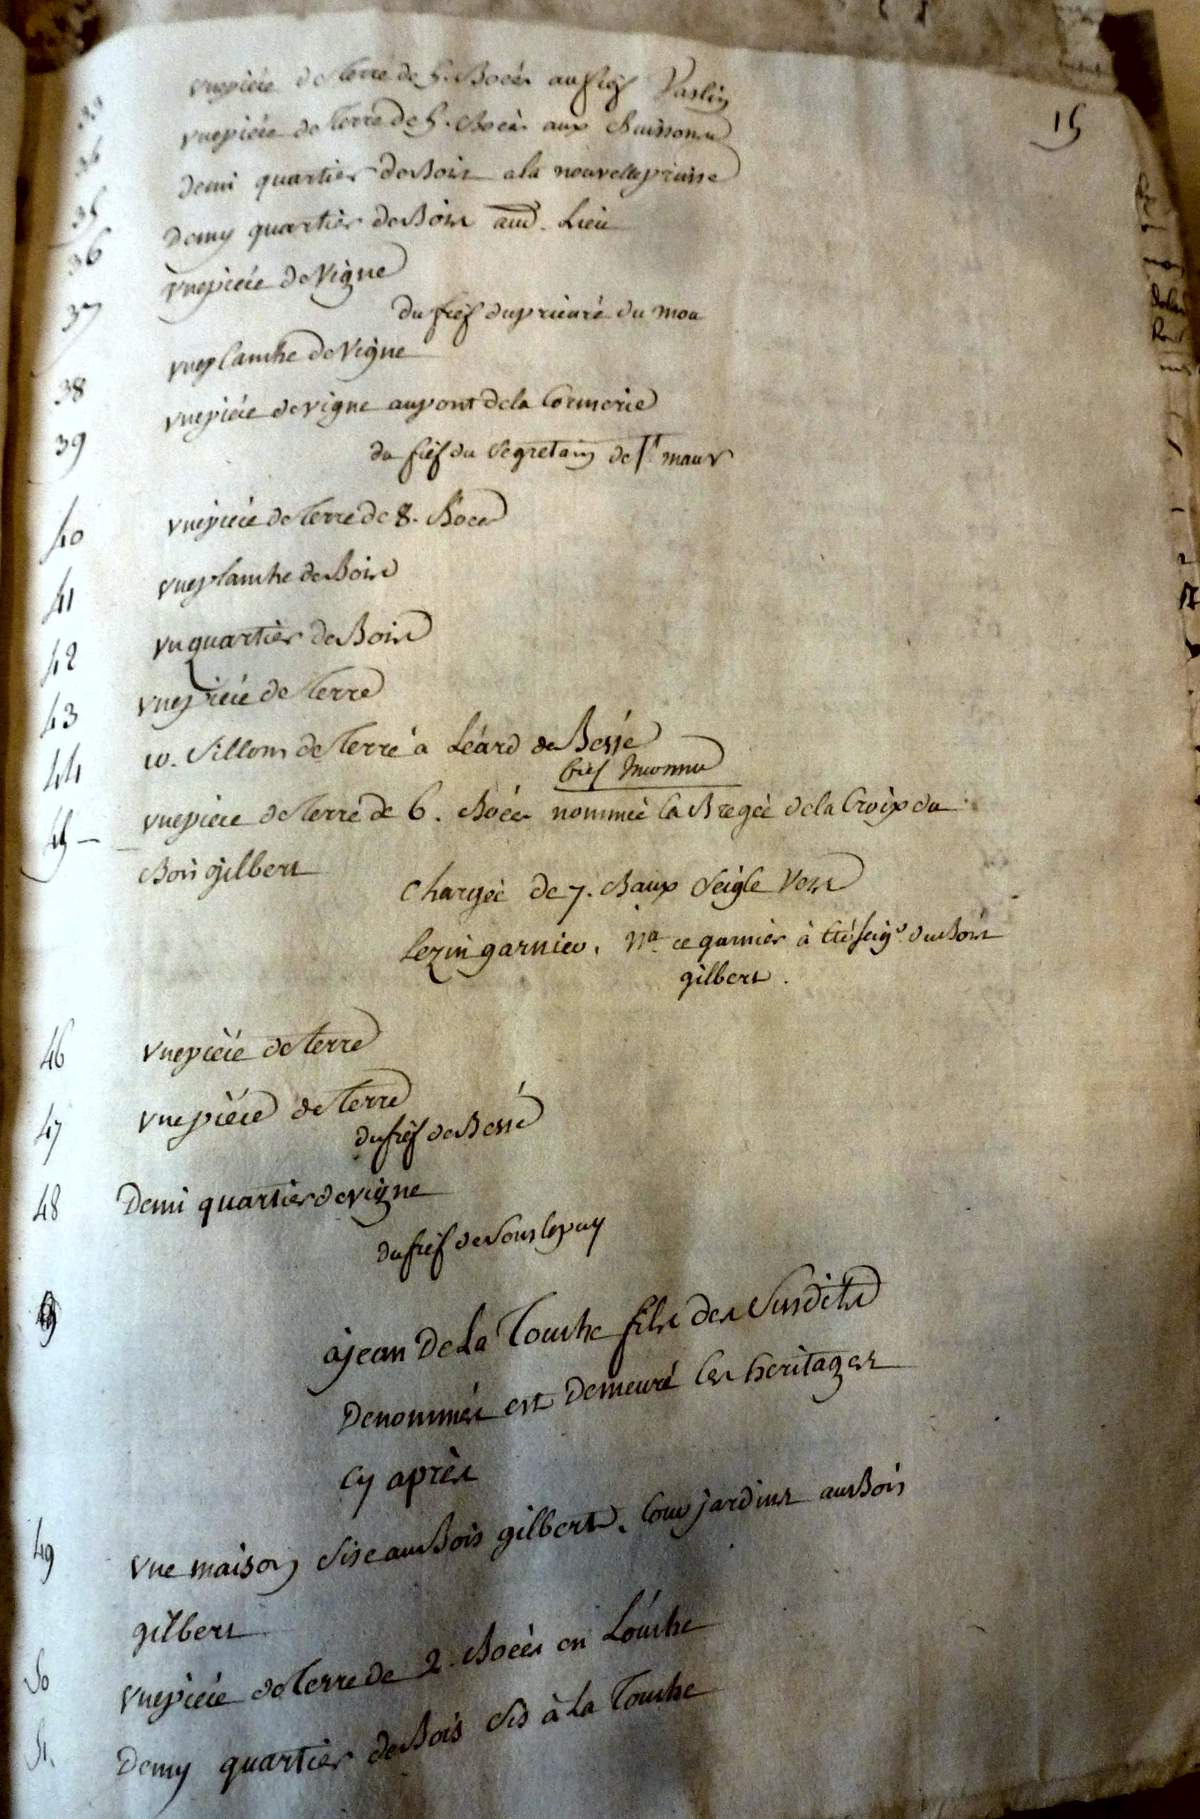 15
33 vne piéce de Terre de 5. Boeés au fief Vaslin
34 vne piéce de Terre de 5. Boeés aux Buissons
35 Demi quartier de Bois a la nouvelle prinse
36 Demy quartier de Bois aud. Lieu
37 vne piéce de Vigne
du fief du prieuré du mou
38 vne planche de Vigne
39 vne piéce de vigne au pont de la Cormerie
du fief du Segretain de St. maur
40 vne piéce de Terre de 8. Boeés
41 vne planche de Bois
42 vn quartier de Bois
43 vne piéce de Terre
44 10. Sillons de Terre à Léard de Bessé
fief Inconnu
45 vne piéce de Terre de 6. Boéés nommée la Bregéé de la Croix du
Bois gilbert
Chargéé de 7. Baux Seigle Vers
Lezin garnier. Na. ce garnier à été seigr. du Bois
gilbert.
46 vne piéce de terre
47 vne piéce de Terre
du fief de Bessé
48 Demi quartier de vigne
du fief de Sous le puy
à jean De La Touche fils des Susdits
Denommés est Demeuré les heritages
Cy après
49 vne maison Sise au Bois gilbert. Cour jardins au Bois
gilbert
50 vne piéce de Terre de 2. Boéés en Louche
51. Demy quartier de Bois Sis à La Touche